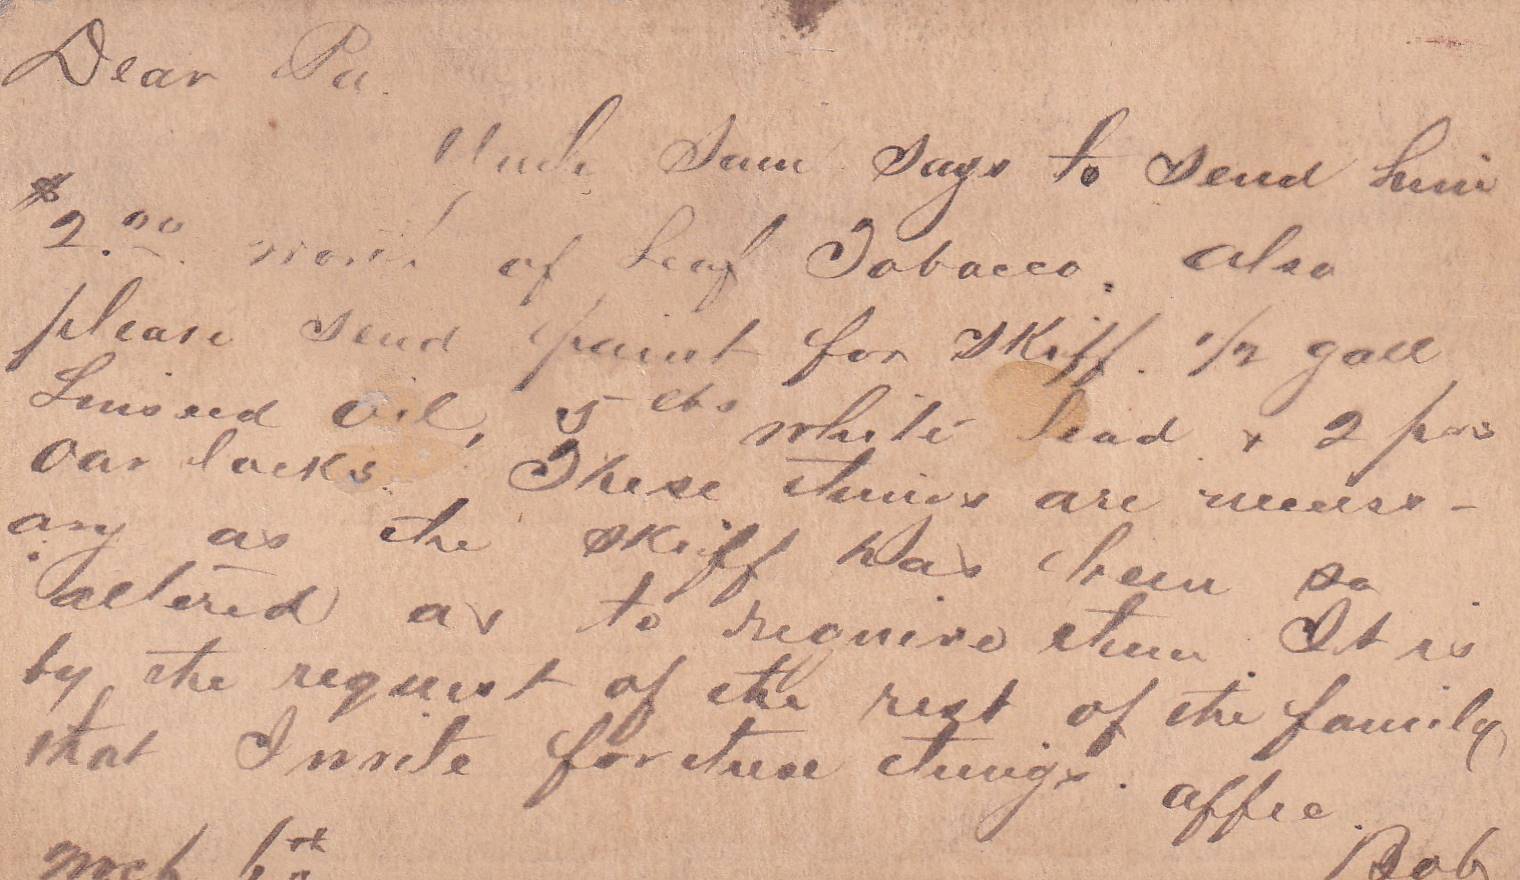 Dear Pa.
Uncle Sam says to send him
$2.00 worth of Leaf Tobacco. also
please send paint for skiff. 1/2 gall
Linseed Oil, 5 lbs white lead & 2 prs
Oar locks. These things are necess-
ary as the skiff has been so
altered as to require them. It is
by the request of the rest of the family
that I write for these things. affec.
Bob